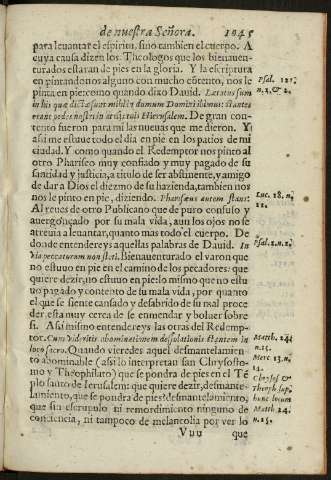 de nuestra Señora. 1045
para leuantar el espiritu, sino tambien el cuerpo. A
cuya causa dizen los Theologos que los bienauen-
turados estaran de pies en la gloria. Y la escriptura
en pintandonos alguno con mucho cõtento, nos le
pinta en pie: como quando dixo Dauid. Lætatus sum
in his quæ dicta sunt mihi: in domum Domini ibimus: stantes
erant pedes nostri in atrijs tuis Hierusalem. De gran con-
tento fueron para mi las nueuas que me dieron. Y assi
assi me estuue todo el dia en pie en los patios de mi
ciudad. Y como quando el Redemptor nos pinto al
otro Phariseo muy confiado y muy pagado de su
santidad y justicia, a titulo de ser abstinente, y amigo
de dar a Dios el diezmo de su hazienda, tambien nos
nos le pinto en pie, diziendo. Pharisæus autem stans:
Al reues de otro Publicano que de puro confuso y
auergonçado por su mala vida, aun los ojos no se
atreuia a leuantar, quanto mas todo el cuerpo. De
donde entendereys aquellas palabras de Dauid. In
via peccatorum non stetit. Bienauenturado el varon que
no estuuo en pie en el camino de los pecadores: que
quiere dezir, no estuuo en pie: lo mismo que no estu-
uo pagado y contento de su mala vida; por quanto
el que se siente cansado y desabrido de su mal proce
der esta muy cerca de se enmendar y boluer sobre
si. Assi mismo entendereys las otras del Redemp-
tor. Cum videritis abominationem desolationis stantem in
loco sacro. Quando vieredes aquel desmantelamien-
to abominable (assi lo interpretan san Chrysosto-
mo y Theophilato) que se pondra de pies en el Tẽ
plo santo de Ierusalem: que quiere dezir, desmante-
lamiento, que se pondra de pies: desmantelamiento,
que sin escrupulo ni remordimiento ninguno de
conciencia, ni tampoco de melancolia por ver lo
Vuu que
Psal. 121.
n. 1, & 2.
Luc. 18. n.
11.
Psal. 1. n. 1.
Matth. 24.
n. 15.
Marc. 13. n.
14.
Chrysos &
Theoph. sup.
hunc locum
Matth. 24.
n. 15.